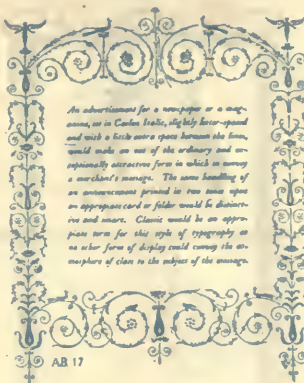 An advertisement for a newspaper or a mag-
azine, set in Caslon Italic, slightly letter-spaced
and with a little extra space between the lines,
would make an out of the ordinary and ex-
ceptionally attractive form in which to convey
a merchant's message. The same handling of
an announcement printed in two tones upon
an appropriate card or folder would be distinct-
ive and smart. Classic would be an appro-
priate term for this style of typography as
no other form of display could convey the at-
mosphere of class to the subject of the message.
A.B. 17